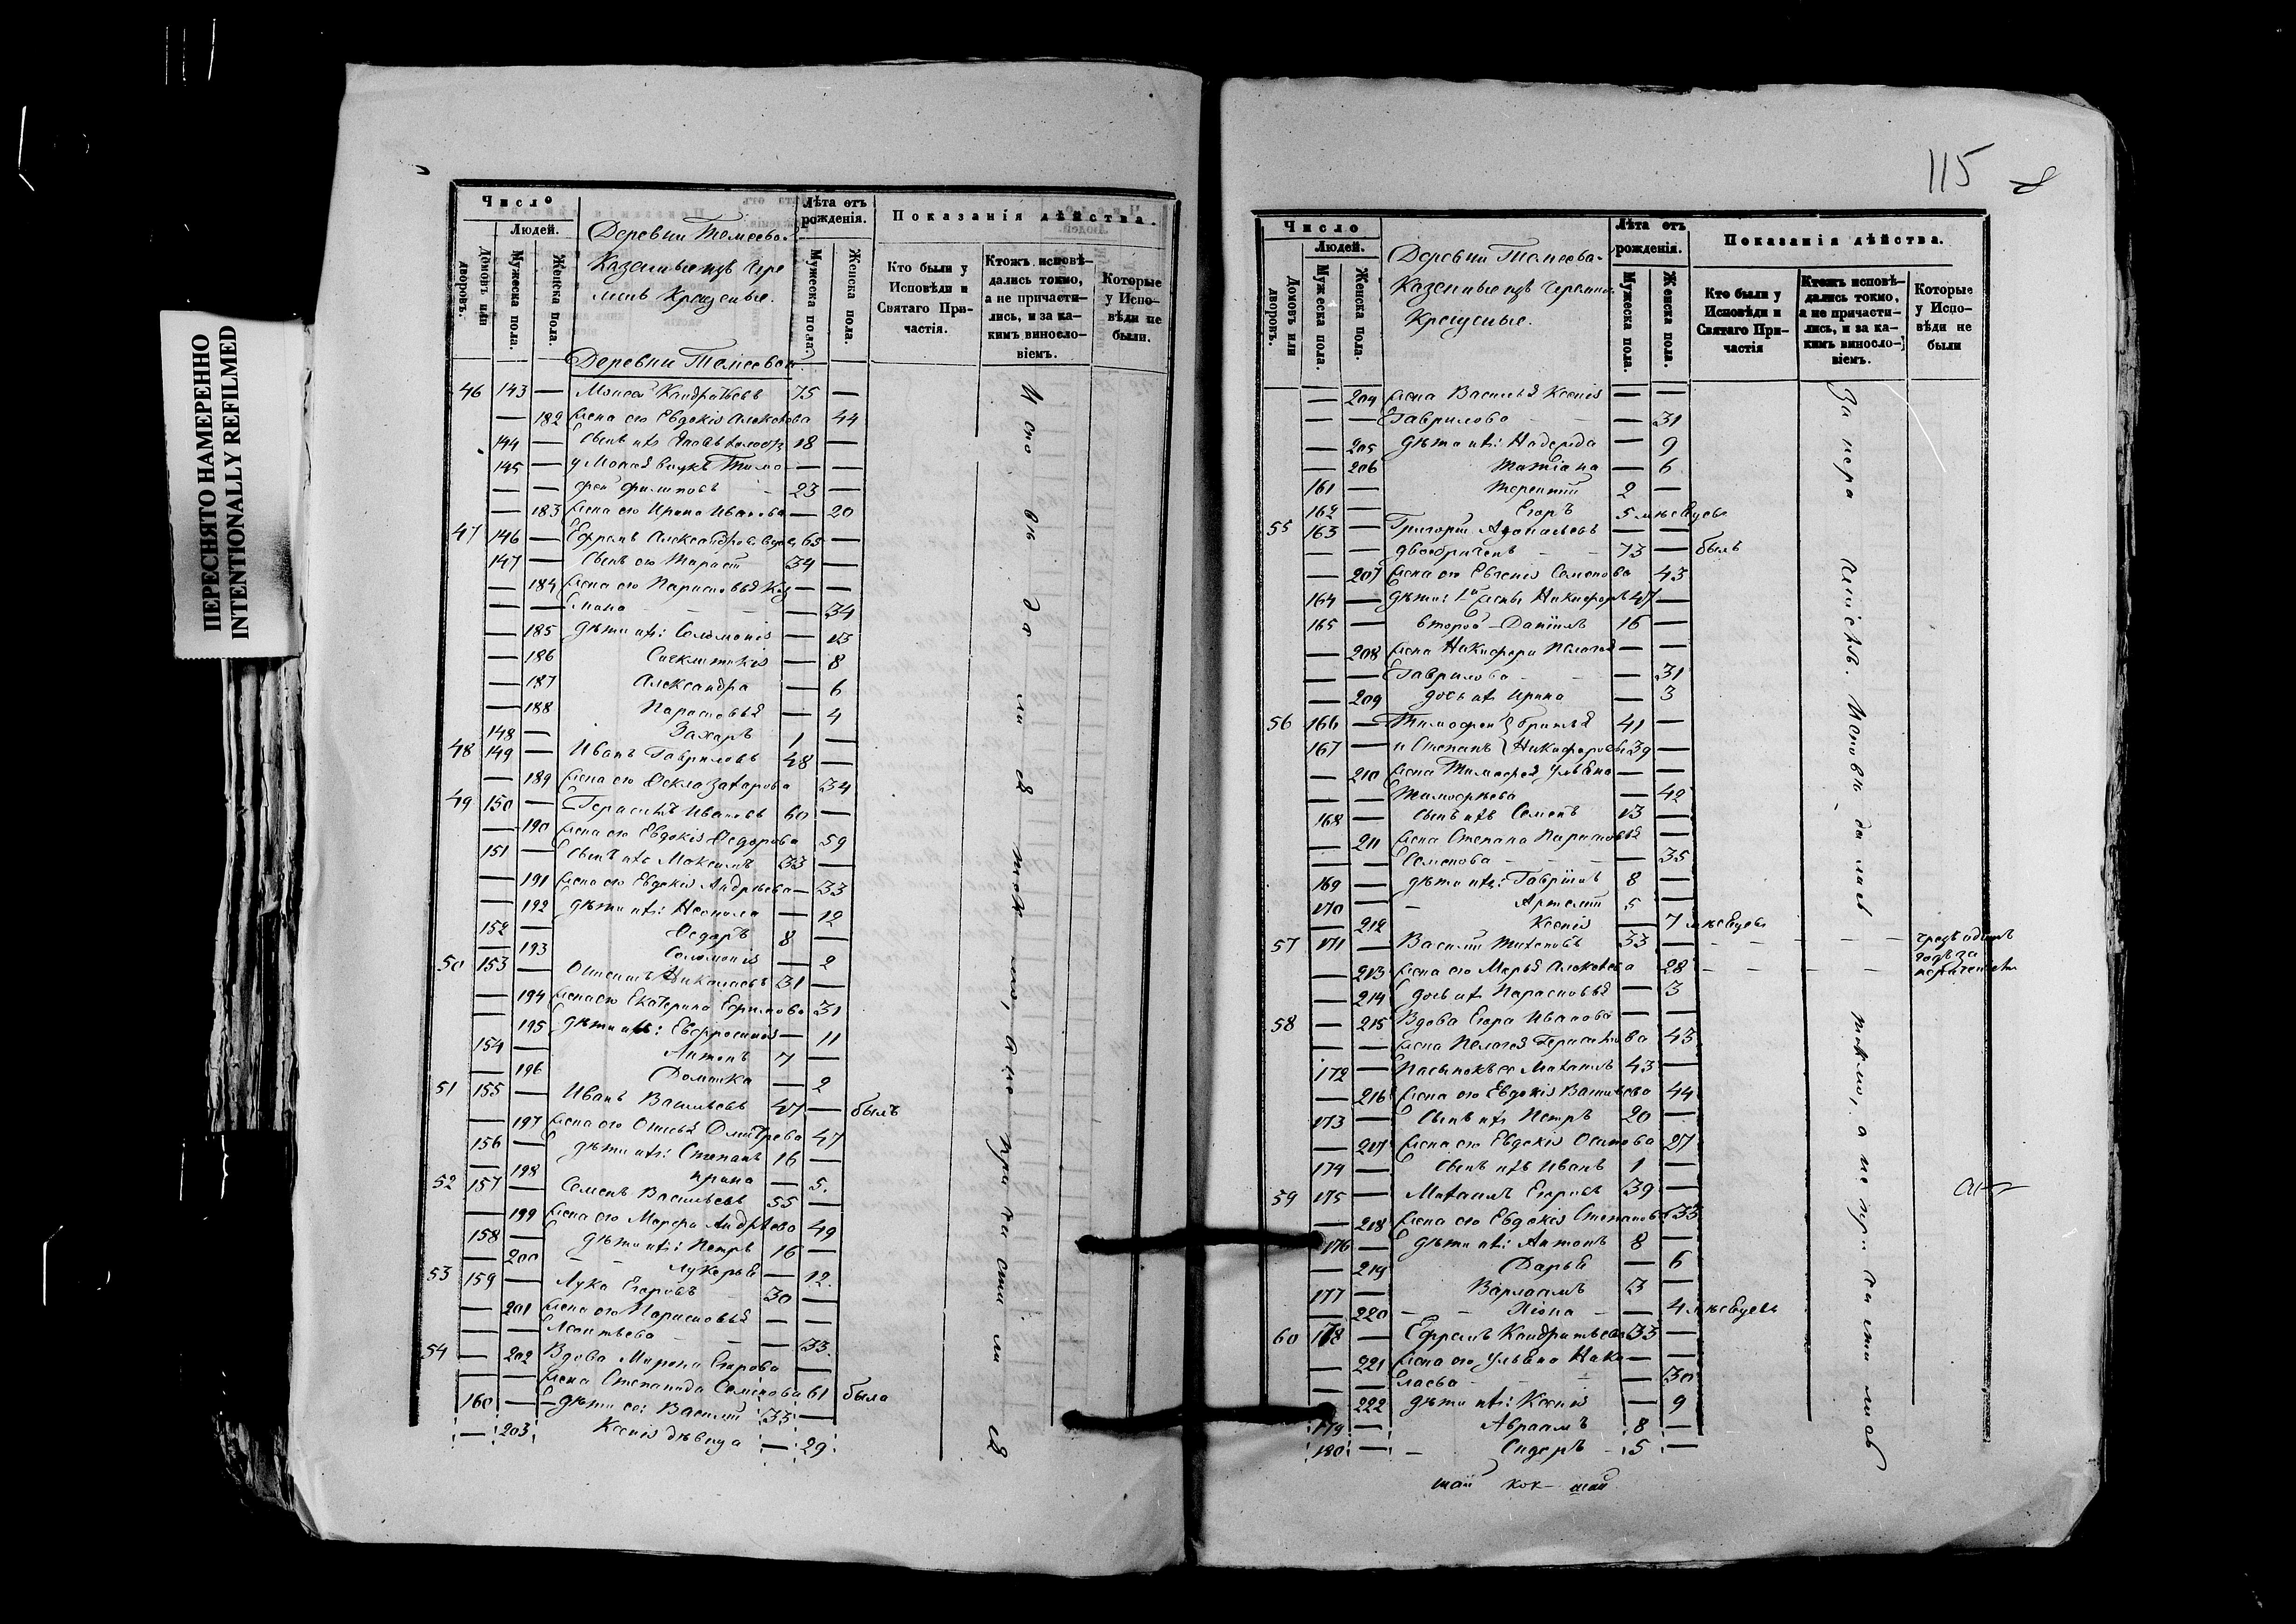 ПЕРЕСНЯТО НАМЕРЕННО
INTENTIONALLY REFILMED
Число
Людей.
Домовъ или дворовъ.
Мужеска пола.
Женска пола.
Деревни
Казенные изъ Чере
мисъ Крещеные.
Лѣта отъ рожденія.
Мужеска пола.
Женска пола.
Показанія дѣйства.
Кто были у Исповѣди и Святаго Причастія.
Ктожъ исповѣдались токмо, а не причастились, и за какимъ винословіемъ.
Которые у Исповѣди не были.
Деревни
46 143 — Моисей Кондратьевъ 75 —
— 182 жена его Евдокія 44
144 — сынъ ихъ 18 —
145 — у Моисея внукъ Тимо — —
— — фей Филиповъ - 23 —
— 183 жена его Ирина Иванова — 20
47 146 — Ефремъ Александровъ вдовъ 65 —
147 — сынъ его Тарасій 34 —
— 184 жена его Парасковья Коз — —
— — мина — 34
— 185 дѣти ихъ: Соломонія — 13
— 186 Синклитикія — 8
— 187 Александра — 6
— 188 Парасковья — 4
148 — Захаръ 1 —
48 149 — Иванъ Гавриловъ 48 —
— 189 жена его Фекла Захарова 34
49 150 — Герасимъ Ивановъ 60 —
— 190 жена его Евдокія Федорова 59
151 — сынъ ихъ Максимъ 33 —
— 191 жена его Евдокія Андреева — 33
— 192 дѣти ихъ: — 12
152 — Федоръ 8 —
— 193 Соломонія — 2
50 153 — Николаевъ 31 —
— 194 жена его Екатерина Ефимова 31
— 195 дѣти ихъ: Евфросинія — 11
154 — Антонъ 7 —
— 196 Домника — 2
51 155 — Иванъ Васильевъ 47 — былъ
— 197 жена его Дмитрева 47
156 — дѣти ихъ: Степанъ 16 —
— 198 Ирина — 5.
52 157 — Семенъ Васильевъ 55 —
— 199 жена его Марфа Андрѣева 49
158 — дѣти ихъ: Петръ 16 —
— 200 - - Лукерья — 12.
53 159 — Лука Егоровъ - 30 —
— 201 жена его Парасковья — —
— — Леонтьева - - — 33.
54 — 202 Вдова Мирона Егорова —
жена Степанида Семенова 61 была
160 — дѣти ее: Василій 33 —
— 203 Ксенія дѣвица — 29
Исповѣдались токмо, а не причастились
115
8
Число
Людей.
Домовъ или дворовъ.
Мужеска пола.
Женска пола.
Деревни
Казенные изъ Черемисъ
Крещеные.
Лѣта отъ рожденія.
Мужеска пола.
Женска пола.
Показанія дѣйства.
Кто были у Исповѣди и Святаго Причастія
Ктожъ исповѣдались токмо, а не причастились, и за какимъ винословіемъ.
Которые у Исповѣди не были
— 204 жена Василья Ксенія — —
— — Гаврилова — 31
— 205 дѣти ихъ: Надежда — 9
— 206 Татіана — 6
161 — Терентій 2 —
162 — Егоръ 5 мѣсяцевъ
55 163 — Григорій — —
— — двоебраченъ - - 73 — былъ
— 207 жена его Евгенія Семенова 43
164 — дѣти: 1й жены Никифоръ 47 —
165 — второй - Даніилъ 16 —
— 208 жена Никифора Пелагея — —
— — Гаврилова - — 31
— 209 дочь ихъ Ирина — 3
56 166 — Тимофей } братья 41 —
167 — и Степанъ } Никифоровы 39 —
— 210 жена Тимофея Ульяна — —
— — Тимофѣева — 42
168 — сынъ ихъ Семенъ 13 —
— 211 жена Степана Парасковья —
— — Семенова - - - — 35
169 — дѣти ихъ: Гавріилъ 8 —
170 — - Артемій 5 —
— 212 Ксенія — 7 мѣсяцевъ
57 171 — Василій Тихоновъ 33 — - - - -
— 213 жена его Марья 28 - - - -
— 214 дочь ихъ Парасковья — 3
58 — 215 Вдова Егора Иванова — —
— — жена Пелагея Герасимова 43
172 — Пасынокъ ее Михаилъ 43 —
— 216 жена его Евдокія Васильева 44
173 — сынъ ихъ Петръ 20 —
— 217 жена его Евдокія Осипова 27
174 — сынъ ихъ Иванъ 1 —
59 175 — Михаилъ Егоровъ 39 —
— 218 жена его Евдокія Степанова 33
176 — дѣти ихъ: Антонъ 8 —
— 219 Дарья — 6
177 — Варлаамъ 3 —
— 220 - - Хіона - — 4 мѣсяцевъ
60 178 — Ефремъ Кондратьевъ 33 —
— 221 жена его Ульяна Нико — —
— — лаева - - — 30
— 222 дѣти ихъ: Ксенія — 9
179 — Авраамъ 8 —
180 — - Сидоръ 5 —
Исповѣдались токмо, а не причастились